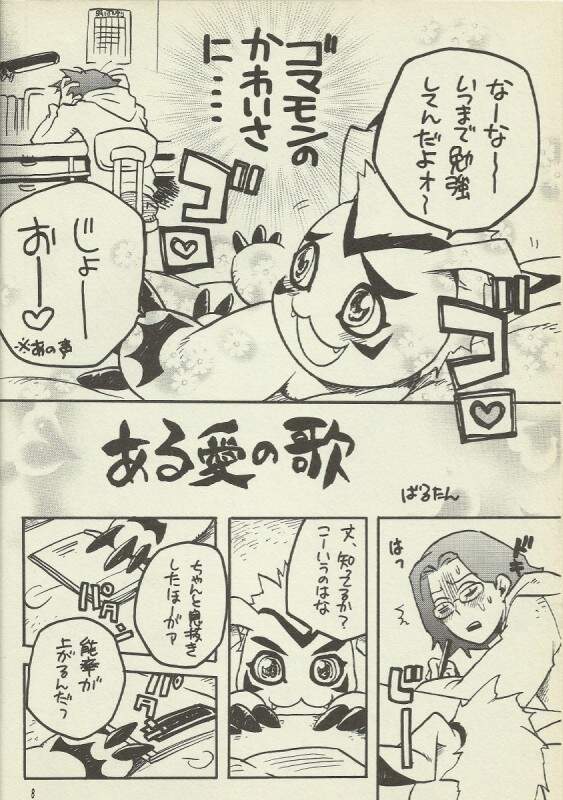 なーなー〜
いつまで勉強
してんだよォ〜
ゴマモンの
かわいさ
に……
ゴロ
じょー
おー♡
※あの声
ゴロ
ある愛の歌
ばるたん
ドキ
はっ
ビビー
丈、知ってるか?
こーいうのはな
ちゃんと息抜き
したほーがァ
パタン
能率が
上がるんだっ
パタン
8